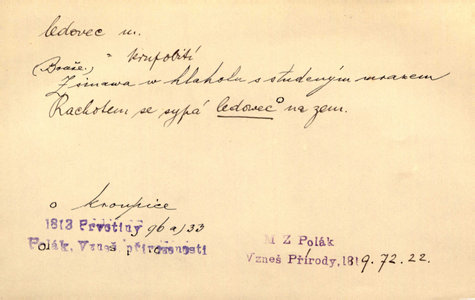 ledovec m.
" krupobití
(Bouře.)
Zimawa w hlaholu s studeným mrazem
Rachotem se sypá ledovec° na zem.
o kroupice
1813 Prvotiny 96 a) 33
Polák, Vzneš přirozenosti
M Z Polák
Vzneš Přírody, 1819. 72. 22.